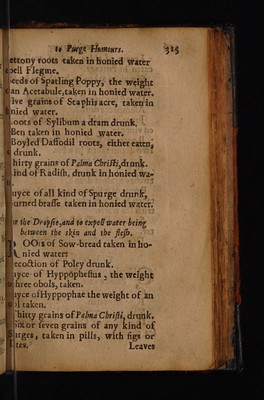 to Purge Humours. 315
ettony roots taken in honied water
pell Flegme.
eeds of Spatling Poppy, the weight
an Acetabule, taken in honied water.
ive grains of Staphis acre, taken in
nied water.
oots of Sylibum a dram drunk.
Ben taken in honied water.
Boyled Daffodil roots, either eaten,
drunk.
hirty grains of Palma Christi, drunk.
ind of Radish, drunk in honied wa-
uyce of all kind of Spurge drunk,
urned brasse taken in honied water.
r the Dropsie, and to expell water being
between the skin and the flesh.
OOts of Sow-bread taken in ho-
nied water:
ecoction of Poley drunk.
uyce of Hyppophestus, the weight
hree obols, taken.
uyce of Hyppophae the weight of an
ol taken.
hirty grains of Palma Christi, drunk.
Six or seven grains of any kind of
urges, taken in pills, with figs or
tes. Leaves